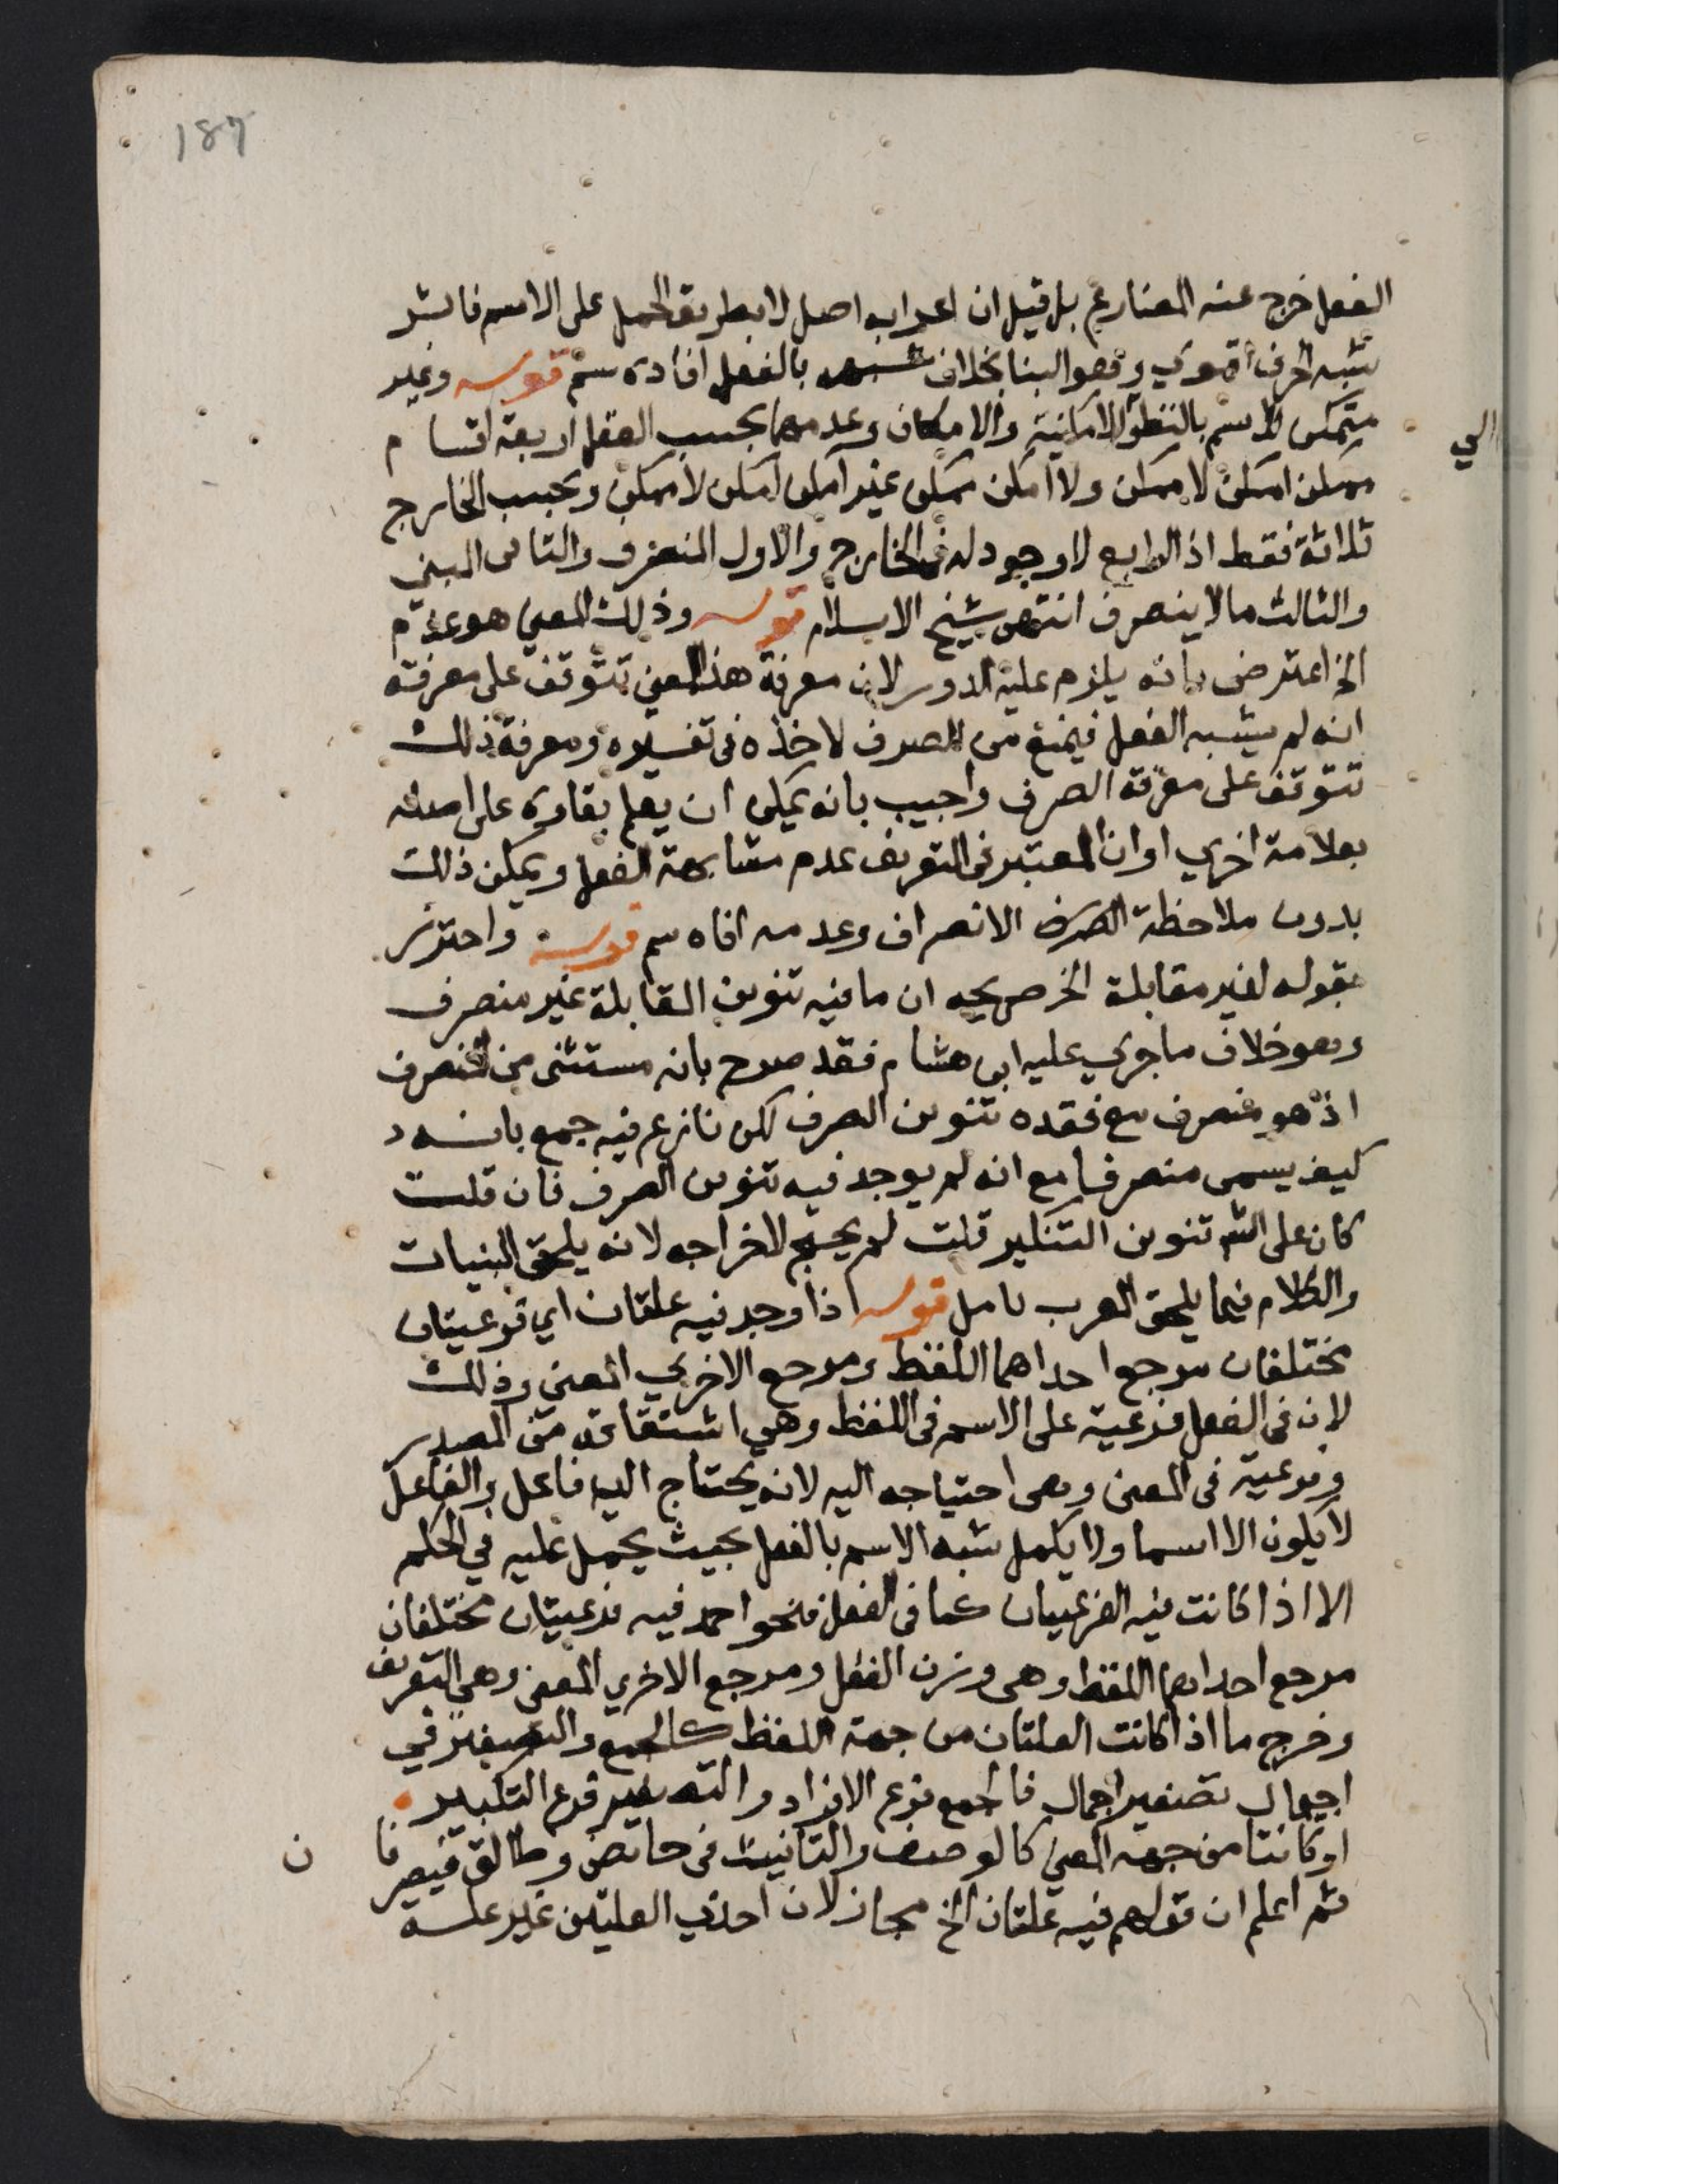 187
الفعل خرج عنه المضارع بل قيل ان اعرابه اصل لا بطريق الحمل على الاسم فاثر
شبه الحرف اقوي وهو البنا بخلاف شبهه بالفعل افاده سم قوله وغير
متمكن الاسم بالنظر الى الامكنية والامكان وعدمهما بحسب العقل اربعة اقسام
ممكن امكن لا ممكن ولا امكن ممكن غير امكن امكن لا ممكن وبحسب الخارج
ثلاثة فقط اذ الرابع لا وجود له فى الخارج والاول المنصرف والثانى المبني
والثالث ما لا ينصرف انتهى شيخ الاسلام قوله وذلك المعنى هو عدم
الخ اعترض بانه يلزم عليه الدور لان معرفة هذا المعنى تتوقف على معرفة
انه لم يشبه الفعل فيمنع من الصرف لاخذه فى تفسيره ومعرفة ذلك
تتوقف على معرفة الصرف واجيب بانه يمكن ان يعلم بقاوه على اصله
بعلامة اخري او ان المعتبر فى التعريف عدم مشابهة الفعل ويمكن ذلك
بدون ملاحظة الصرف الانصراف وعدمه افاه سم قوله واحترز
بقوله لغير مقابلة الخ صريحه ان ما فيه تنوين المقابلة غير منصرف
وهو خلاف ما جري عليه ابن هشام فقد صرح بانه مستثنى من المنصرف
اذ هو منصرف مع فقده تنوين الصرف لكن نازع فيه جمع بانه
كيف يسمى منصرفا مع انه لم يوجد فيه تنوين الصرف فان قلت
كان على الش تنوين التنكير قلت لم يحتج لاخراجه لانه يلحق المبنيات
والكلام فيما يلحق المعرب تامل قوله اذا وجد فيه علتان اي فرعيتان
مختلفان مرجع احداهما اللفظ ومرجع الاخري المعنى وذلك
لان فى الفعل فرعية على الاسم فى اللفظ وهي اشتقاقه من المصدر
وفرعية فى المعنى وهى احتياجه اليه لانه يحتاج اليه فاعل والفاعل
لا يكون الا اسما ولا يكمل شبه الاسم بالفعل بحيث يحمل عليه في الحكم
الا اذا كانت فيه الفرعيتان كما فى الفعل فنحو احمد فيه فرعيتان مختلفان
مرجع احداهما اللفظ وهى وزن الفعل ومرجع الاخري المعنى وهى التعريف
وخرج ما اذا كانت العلتان من جهة اللفظ كالجمع والتصغير في
اجيمال تصغير اجمال فالجمع فرع الافراد والتصغير فرع التكبير
او كانتا من جهة المعنى كالوصف والتانيث فى حائض وطالق فيصرفان
ثم اعلم ان قولهم فيه علتان الخ مجاز لان احدي العلتين غير علة